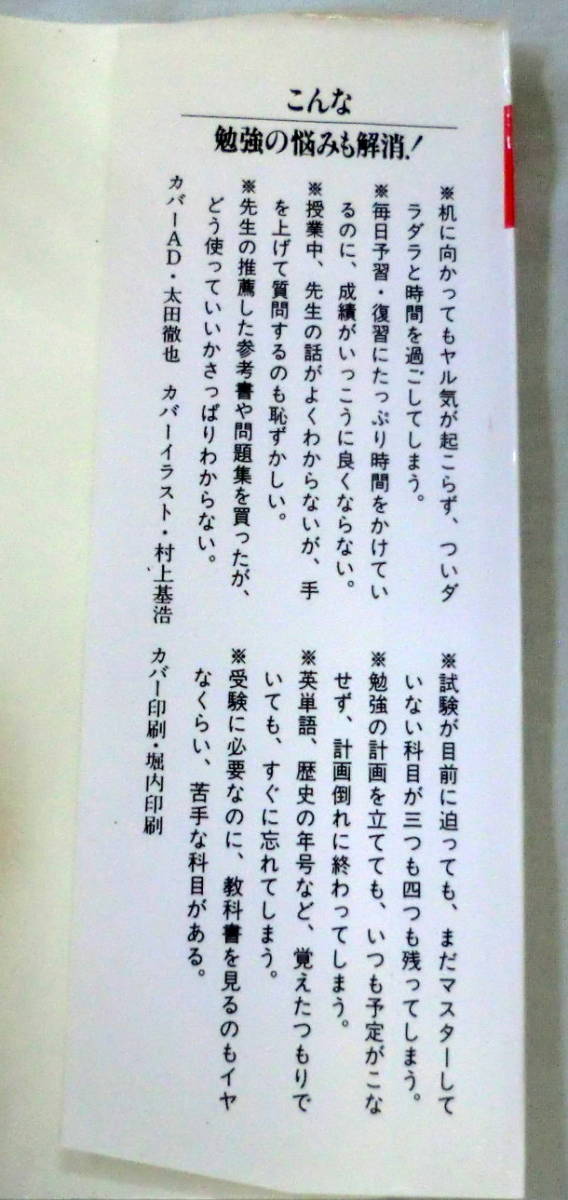 こんな
勉強の悩みも解消!
※机に向かってもヤル気が起こらず、ついダ
ラダラと時間を過ごしてしまう。
※毎日予習・復習にたっぷり時間をかけてい
るのに、成績がいっこうに良くならない。
※授業中、先生の話がよくわからないが、手
を上げて質問するのも恥ずかしい。
※先生の推薦した参考書や問題集を買ったが、
どう使っていいかさっぱりわからない。
※試験が目前に迫っても、まだマスターして
いない科目が三つも四つも残ってしまう。
※勉強の計画を立てても、いつも予定がこな
せず、計画倒れに終わってしまう。
※英単語、歴史の年号など、覚えたつもりで
いても、すぐに忘れてしまう。
※受験に必要なのに、教科書を見るのもイヤ
なくらい、苦手な科目がある。
カバーAD・太田徹也 カバーイラスト・村上基浩 カバー印刷・堀内印刷